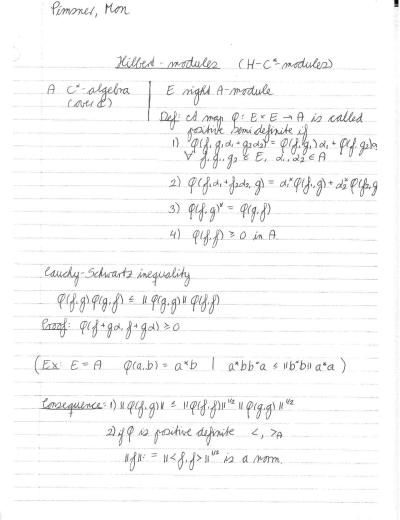 Pimsner, Mon
Hilbert-modules (H-C*-modules)
A C*-algebra
(over ℂ)
E right A-module
Def: A map φ: E×E → A is called
positive semidefinite if
1) φ(f, g₁α₁+g₂α₂) = φ(f,g₁)α₁ + φ(f,g₂)α₂
∀ f, g₁, g₂ ∈ E, α₁, α₂ ∈ A
2) φ(f₁α₁+f₂α₂, g) = α₁*φ(f₁,g) + α₂*φ(f₂,g
3) φ(f,g)* = φ(g,f)
4) φ(f,f) ≥ 0 in A.
Cauchy-Schwartz inequality
φ(f,g)φ(g,f) ≤ ‖φ(g,g)‖ φ(f,f)
Proof: φ(f+gα, f+gα) ≥ 0
(Ex: E = A φ(a,b) = a*b | a*bb*a ≤ ‖b*b‖ a*a)
Consequence: 1) ‖φ(f,g)‖ ≤ ‖φ(f,f)‖^1/2 ‖φ(g,g)‖^1/2
2) if φ is positive definite <, >_A
‖f‖ := ‖<f,f>‖^1/2 is a norm.